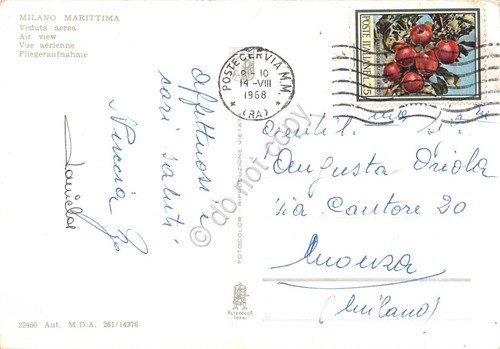 MILANO MARITTIMA
Veduta aerea
Air view
Vue aérienne
Fliegeraufnahme
affettuosi e
cari saluti
Nuccia
POSTE CERVIA M.M.
8-10
14-VIII
1968
(RA)
POSTE ITALIANE L.25
Gentil. Sig.
Augusta Oriola
via Cantore 20
Monza
(Milano)
FOTOCOLOR RIPRODUZIONE VIETATA
ALTEROCCA
TERNI
22460 Aut. M.D.A. 261/14376
do not copy